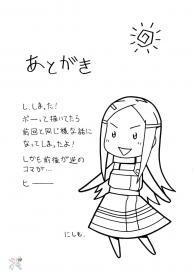 あとがき
し、しまった!
ボーって描いてたら
前回と同じ様な話に
なってしまったよ!
しかも前後が逆の
コマが…
ヒ———
にしも.